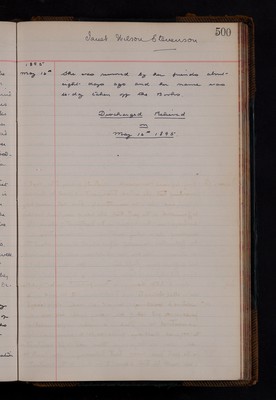 500
Janet Wilson Stevenson
1895
May 16th She was removed by her friends about
eight days ago and her name was
to-day taken off the Books
Discharged Relieved
May 16th 1895